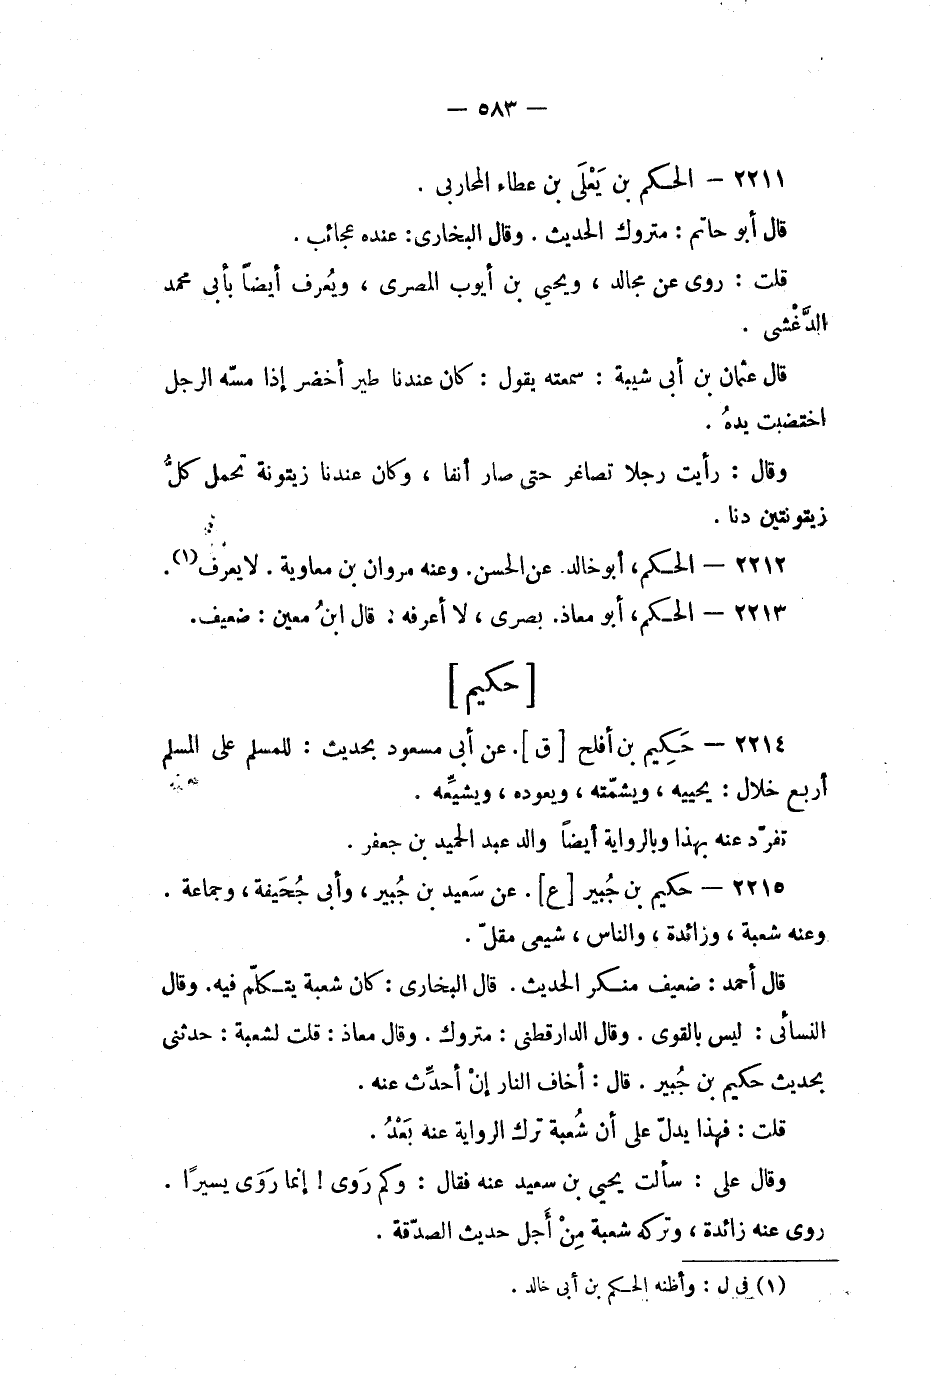 — ٥٨٣ —
٢٢١١ – الحكم بن يَعْلَى بن عطاء المحاربى .
قال أبو حاتم : متروك الحديث . وقال البخارى: عنده عجائب .
قلت : روى عن مجالد ، ويحيى بن أيوب المصرى ، ويُعرف أيضاً بأبى محمد
الدَّغْشى .
قال عثمان بن أبى شيبة : سمعته يقول : كان عندنا طير أخضر إذا مسّه الرجل
اختضبت يدهُ .
وقال : رأيت رجلا تصاغر حتى صار أنفا ، وكان عندنا زيتونة تحمل كلُّ
زيتونتين دنا .
٢٢١٢ – الحكم، أبو خالد. عن الحسن. وعنه مروان بن معاوية . لا يعرف(١).
٢٢١٣ – الحكم، أبو معاذ. بصرى ، لا أعرفه ؛ قال ابنُ معين : ضعيف.
[ حكيم ]
٢٢١٤ – حَكِيم بن أفلح [ ق ]. عن أبى مسعود بحديث : للمسلم على المسلم
أربع خلال : يحييه ، ويشمّته ، ويعوده ، ويشيِّعه .
تفرّد عنه بهذا وبالرواية أيضاً والد عبد الحميد بن جعفر .
٢٢١٥ – حكيم بن جُبير [ع] . عن سَعيد بن جُبير ، وأبى جُحَيفة ، وجماعة .
وعنه شعبة ، وزائدة ، والناس ، شيعى مقلّ .
قال أحمد : ضعيف منكر الحديث . قال البخارى : كان شعبة يتكلّم فيه. وقال
النسائى : ليس بالقوى . وقال الدارقطنى : متروك . وقال معاذ : قلت لشعبة : حدثنى
بحديث حكيم بن جُبير . قال : أخاف النار إنْ أحدِّث عنه .
قلت : فهذا يدلّ على أن شُعبة ترك الرواية عنه بَعْدُ .
وقال على : سألت يحيى بن سعيد عنه فقال : وكم رَوى ! إنما رَوَى يسيرًا .
روى عنه زائدة ، وتركه شعبة مِنْ أَجل حديث الصدّقة .
(١) فى ل : وأظنه الحكم بن أبى خالد .